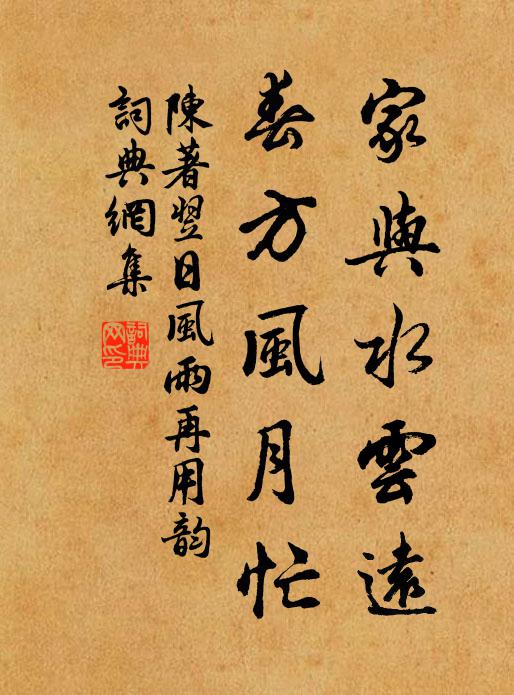 家與水雲遠
春方風月忙
陳著翌日風雨再用韵
詞典網集
詞典
网印